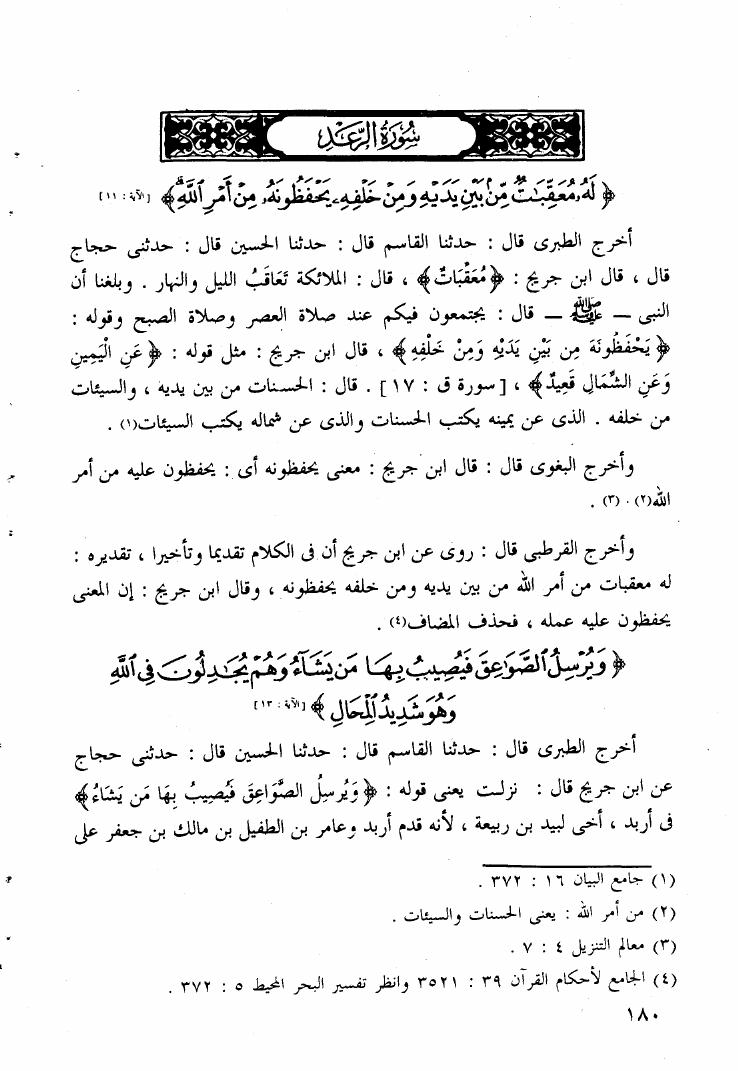 سُورَةُ الرَّعْد
﴿ لَهُۥ مُعَقِّبَٰتٌ مِّنۢ بَيْنِ يَدَيْهِ وَمِنْ خَلْفِهِۦ يَحْفَظُونَهُۥ مِنْ أَمْرِ ٱللَّهِ ﴾ [الآية : ١١]
أخرج الطبرى قال : حدثنا القاسم قال : حدثنا الحسين قال : حدثنى حجاج
قال ، قال ابن جريج : ﴿ مُعَقِّبَاتٌ ﴾ ، قال : الملائكة تَعَاقَبُ الليل والنهار . وبلغنا أن
النبى — ﷺ — قال : يجتمعون فيكم عند صلاة العصر وصلاة الصبح وقوله :
﴿ يَحْفَظُونَهُ مِن بَيْنِ يَدَيْهِ وَمِنْ خَلْفِهِ ﴾ ، قال ابن جريج : مثل قوله : ﴿ عَنِ الْيَمِينِ
وَعَنِ الشِّمَالِ قَعِيدٌ ﴾ ، [ سورة ق : ١٧ ] . قال : الحسنات من بين يديه ، والسيئات
من خلفه . الذى عن يمينه يكتب الحسنات والذى عن شماله يكتب السيئات(١) .
وأخرج البغوى قال : قال ابن جريج : معنى يحفظونه أى : يحفظون عليه من أمر
الله(٢) . (٣) .
وأخرج القرطبى قال : روى عن ابن جريج أن فى الكلام تقديما وتأخيرا ، تقديره :
له معقبات من أمر الله من بين يديه ومن خلفه يحفظونه ، وقال ابن جريج : إن المعنى
يحفظون عليه عمله ، فحذف المضاف(٤) .
﴿ وَيُرْسِلُ ٱلصَّوَٰعِقَ فَيُصِيبُ بِهَا مَن يَشَآءُ وَهُمْ يُجَٰدِلُونَ فِى ٱللَّهِ
وَهُوَ شَدِيدُ ٱلْمِحَالِ ﴾ [الآية : ١٣]
أخرج الطبرى قال : حدثنا القاسم قال : حدثنا الحسين قال : حدثنى حجاج
عن ابن جريج قال : نزلت يعنى قوله : ﴿ وَيُرسِلُ الصَّوَاعِقَ فَيُصِيبُ بِهَا مَن يَشَاءُ ﴾
فى أربد ، أخى لبيد بن ربيعة ، لأنه قدم أربد وعامر بن الطفيل بن مالك بن جعفر على
(١) جامع البيان ١٦ : ٣٧٢ .
(٢) من أمر الله : يعنى الحسنات والسيئات .
(٣) معالم التنزيل ٤ : ٧ .
(٤) الجامع لأحكام القرآن ٣٩ : ٣٥٢١ وانظر تفسير البحر المحيط ٥ : ٣٧٢ .
١٨٠